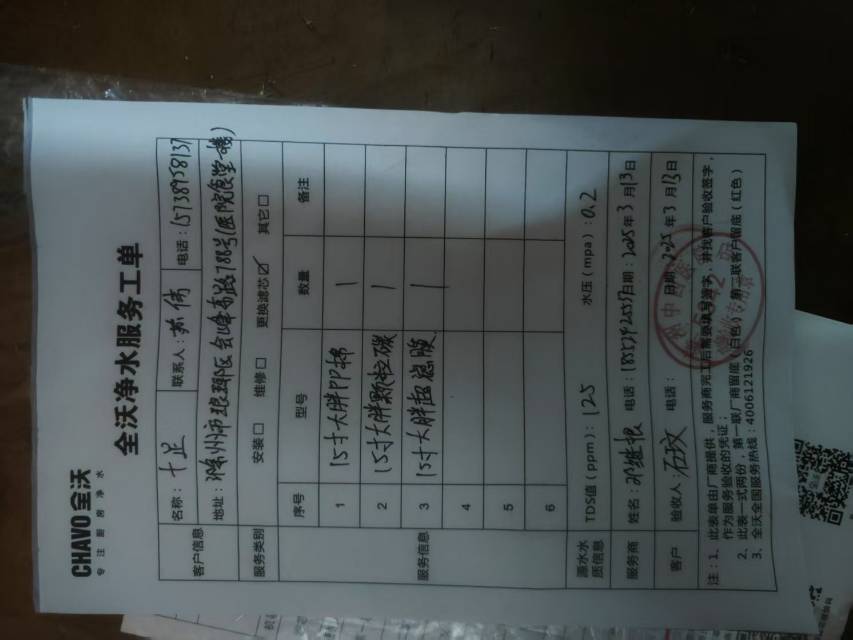 CHAVO全沃
专注厨房净水
全沃净水服务工单
客户信息 名称：十足 联系人：芦伟 电话：15738958137
地址：滁州市琅琊区会峰南路788号(医院食堂一楼)
服务类别 安装□ 维修□ 更换滤芯☑ 其它□
服务信息 序号 型号 数量 备注
1 15寸大胖PP棉 1
2 15寸大胖颗粒碳 1
3 15寸大胖超滤膜 1
4
5
6
源水水质信息 TDS值（ppm）：125 水压（mpa）：0.2
服务商 姓名：邓继根 电话： 日期：2025年3月13日
客户 验收人：石玟 电话： 日期：2025年3月13日
注：1、此表单由厂商提供，服务商完工后需要填写签字，并找客户验收签字，
作为服务验收的凭证；
2、此表一式两份，第一联厂商留底（白色）第二联客户留底（红色）
3、全沃全国服务热线：4006121926